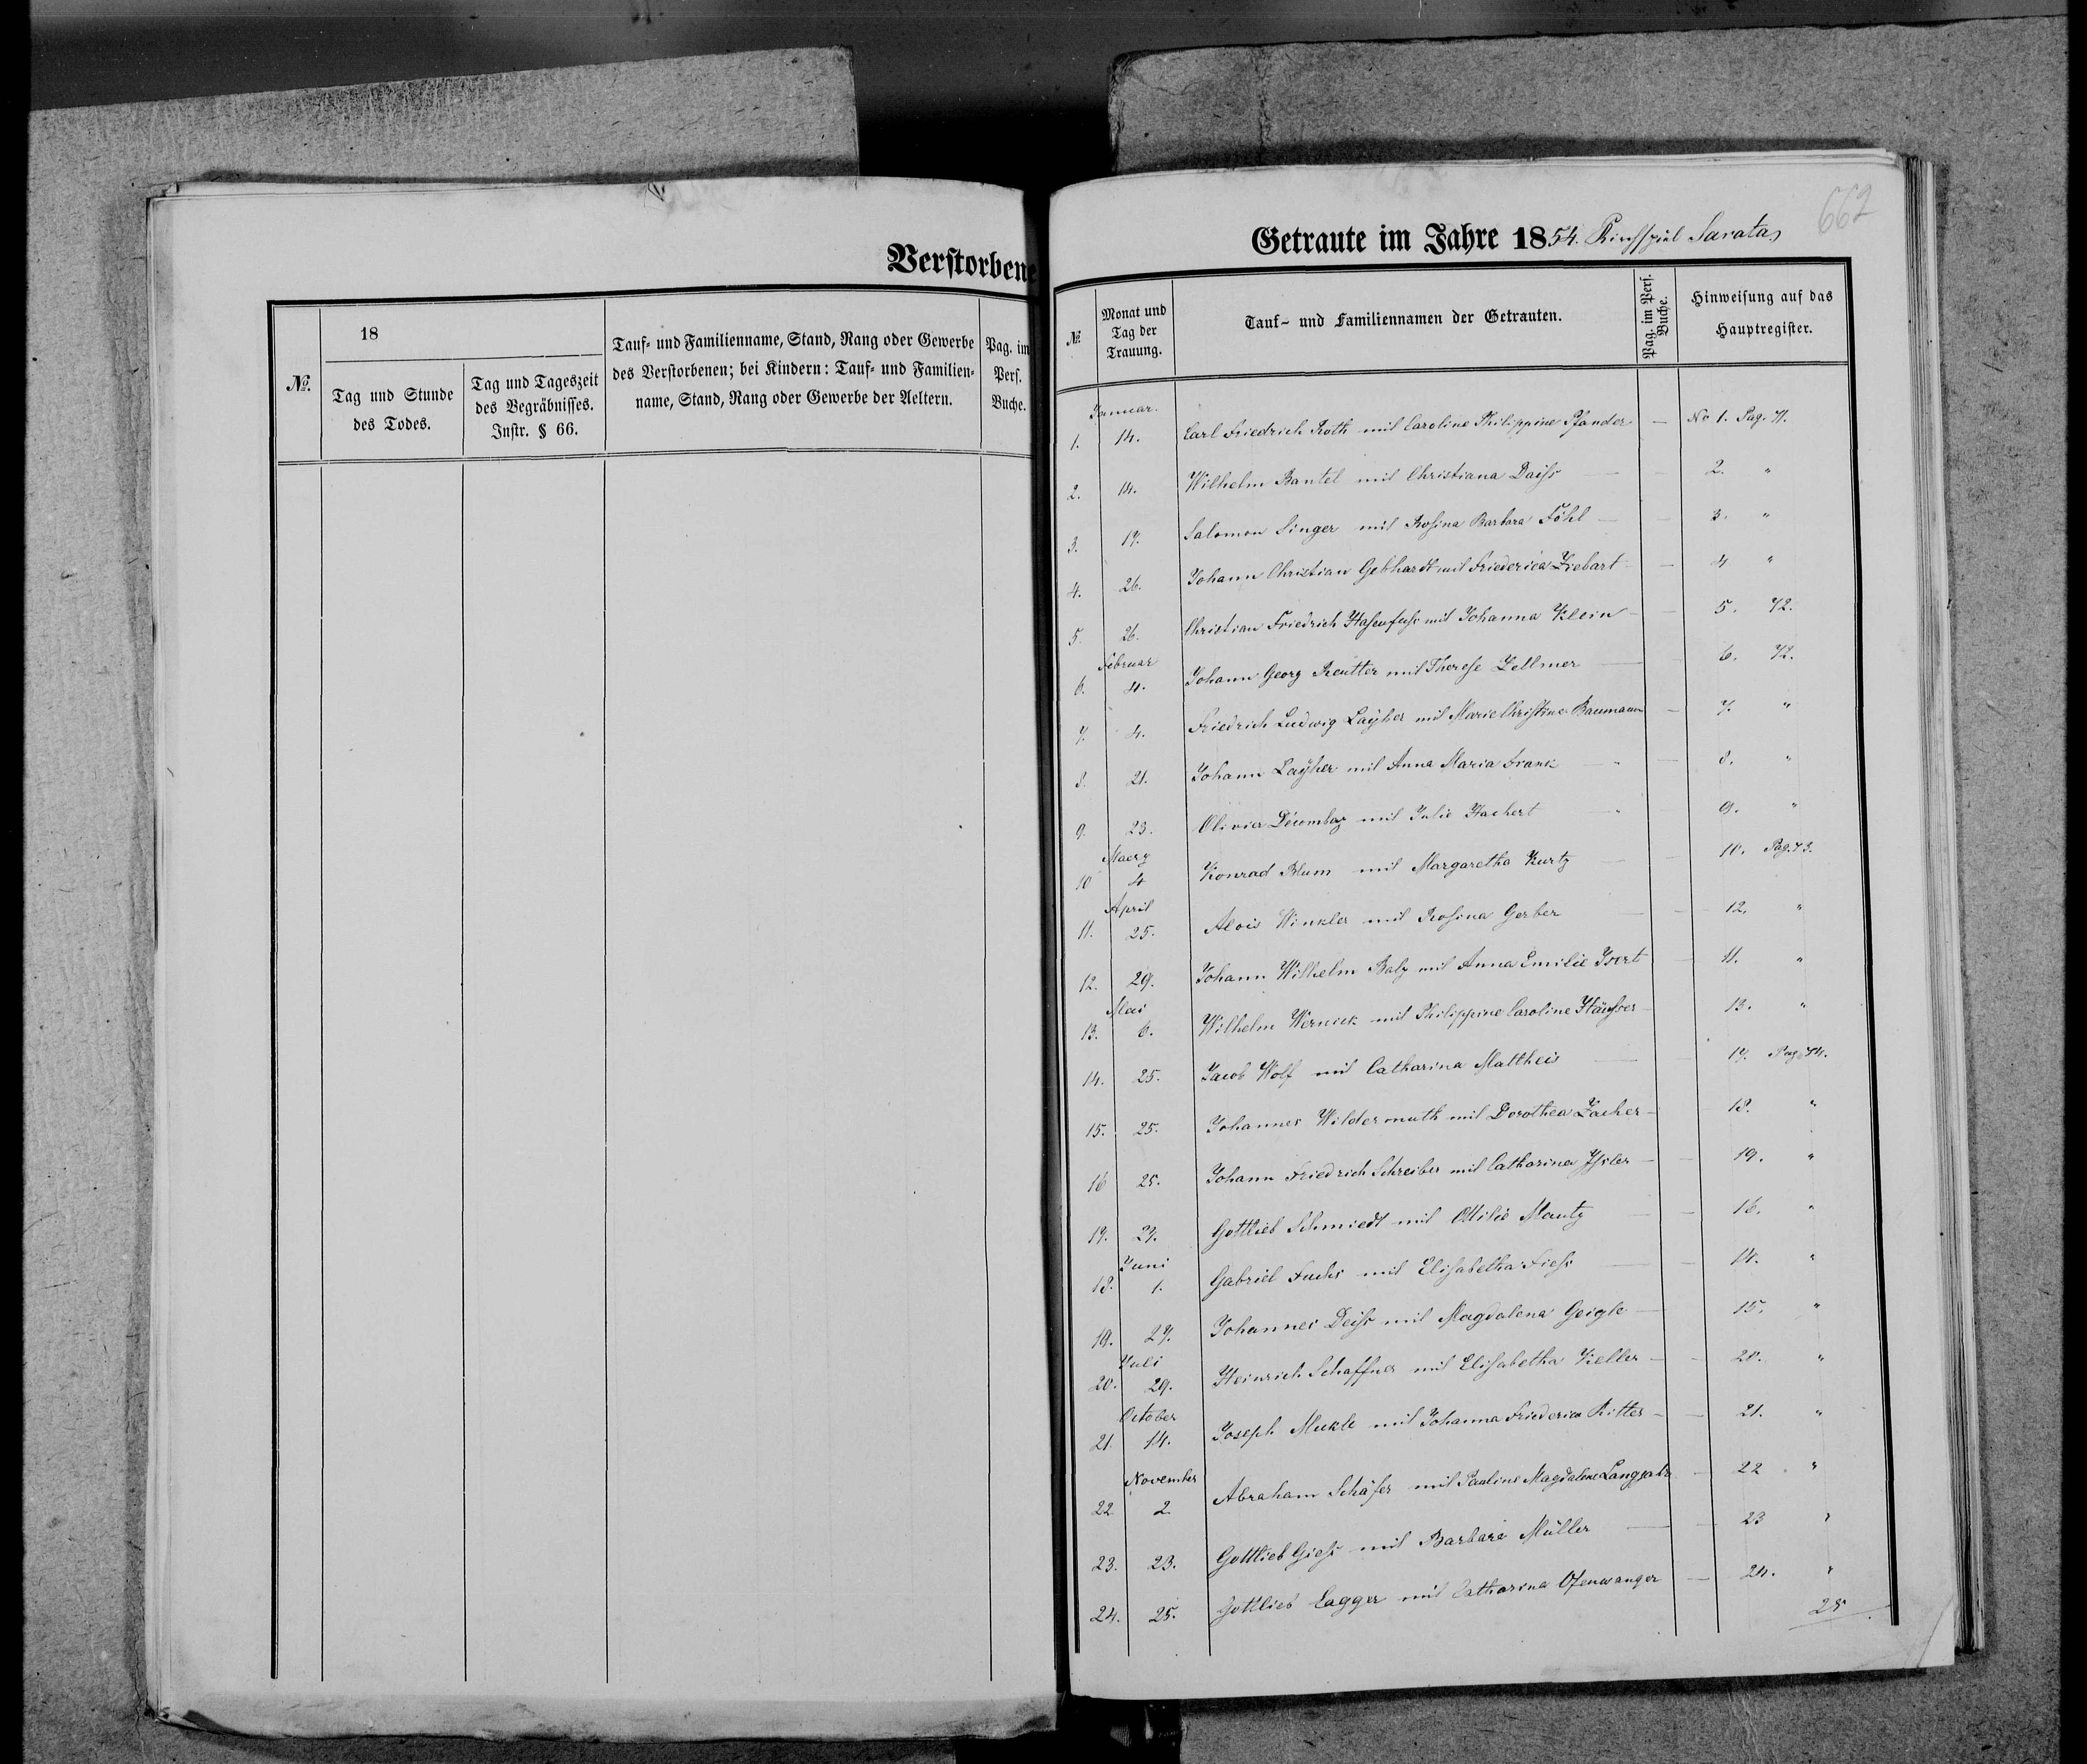 Verstorbene
№.
18
Tag und Stunde
des Todes.
Tag und Tageszeit
des Begräbnisses.
Instr. § 66.
Tauf- und Familienname, Stand, Rang oder Gewerbe
des Verstorbenen; bei Kindern: Tauf- und Familien-
name, Stand, Rang oder Gewerbe der Aeltern.
Pag. im
Pers.
Buche.
662
Getraute im Jahre 1854. Kirchspiel Sarata
№
Monat und
Tag der
Trauung.
Tauf- und Familiennamen der Getrauten.
Pag. im Pers.
Buche.
Hinweisung auf das
Hauptregister.
Januar.
1. 14. Carl Friedrich Roth mit Caroline Philippine Pfander — No 1. Pag. 71.
2. 14. Wilhelm Bantel mit Christiana Daiss — 2. "
3. 17. Salomon Singer mit Rosina Barbara Föhl — 3. "
4. 26. Johann Christian Gebhardt mit Friederica Ziebart — 4 "
5. 26. Christian Friedrich Hasenfuss mit Johanna Klein — 5. 72.
Februar
6. 4. Johann Georg Reutter mit Therese Zellmer — 6. 72.
7. 4. Friedrich Ludwig Layher mit Marie Christine Baumann — 7. "
8. 21. Johann Layher mit Anna Maria Frank — 8. "
9. 23. Olivier Décombaz mit Julie Hachert 9. "
Maerz
10 4 Konrad Blum mit Margaretha Kurtz — 10. Pag. 73.
April
11. 25. Alois Winkler mit Rosina Gerber — 12. "
12. 29. Johann Wilhelm Balz mit Anna Emilie Isert — 11. "
Mai
13. 6. Wilhelm Wernick mit Philippine Caroline Häusser — 13. "
14. 25. Jacob Wolf mit Catharina Mattheis — 17. Pag. 74.
15. 25. Johannes Wildermuth mit Dorothea Zacher — 18. "
16 25. Johann Friedrich Schreiber mit Catharina Issler — 19. "
17. 27. Gottlieb Schmiedt mit Ottilie Mautz — 16. "
Juni
18. 1. Gabriel Fuchs mit Elisabetha Fiess — 14. "
19. 27. Johannes Deiss mit Magdalena Geigle — 15. "
Juli
20. 29. Heinrich Schaffner mit Elisabetha Keller — 20. "
October
21. 14. Joseph Mukle mit Johanna Friederica Ritter — 21. "
November
22 2 Abraham Schäfer mit Pauline Magdalene — 22 "
23. 23. Gottlieb Giess mit Barbara Müller — 23 "
24. 25. Gottlieb Cagger mit Catharina Ofenwanger — 24. "